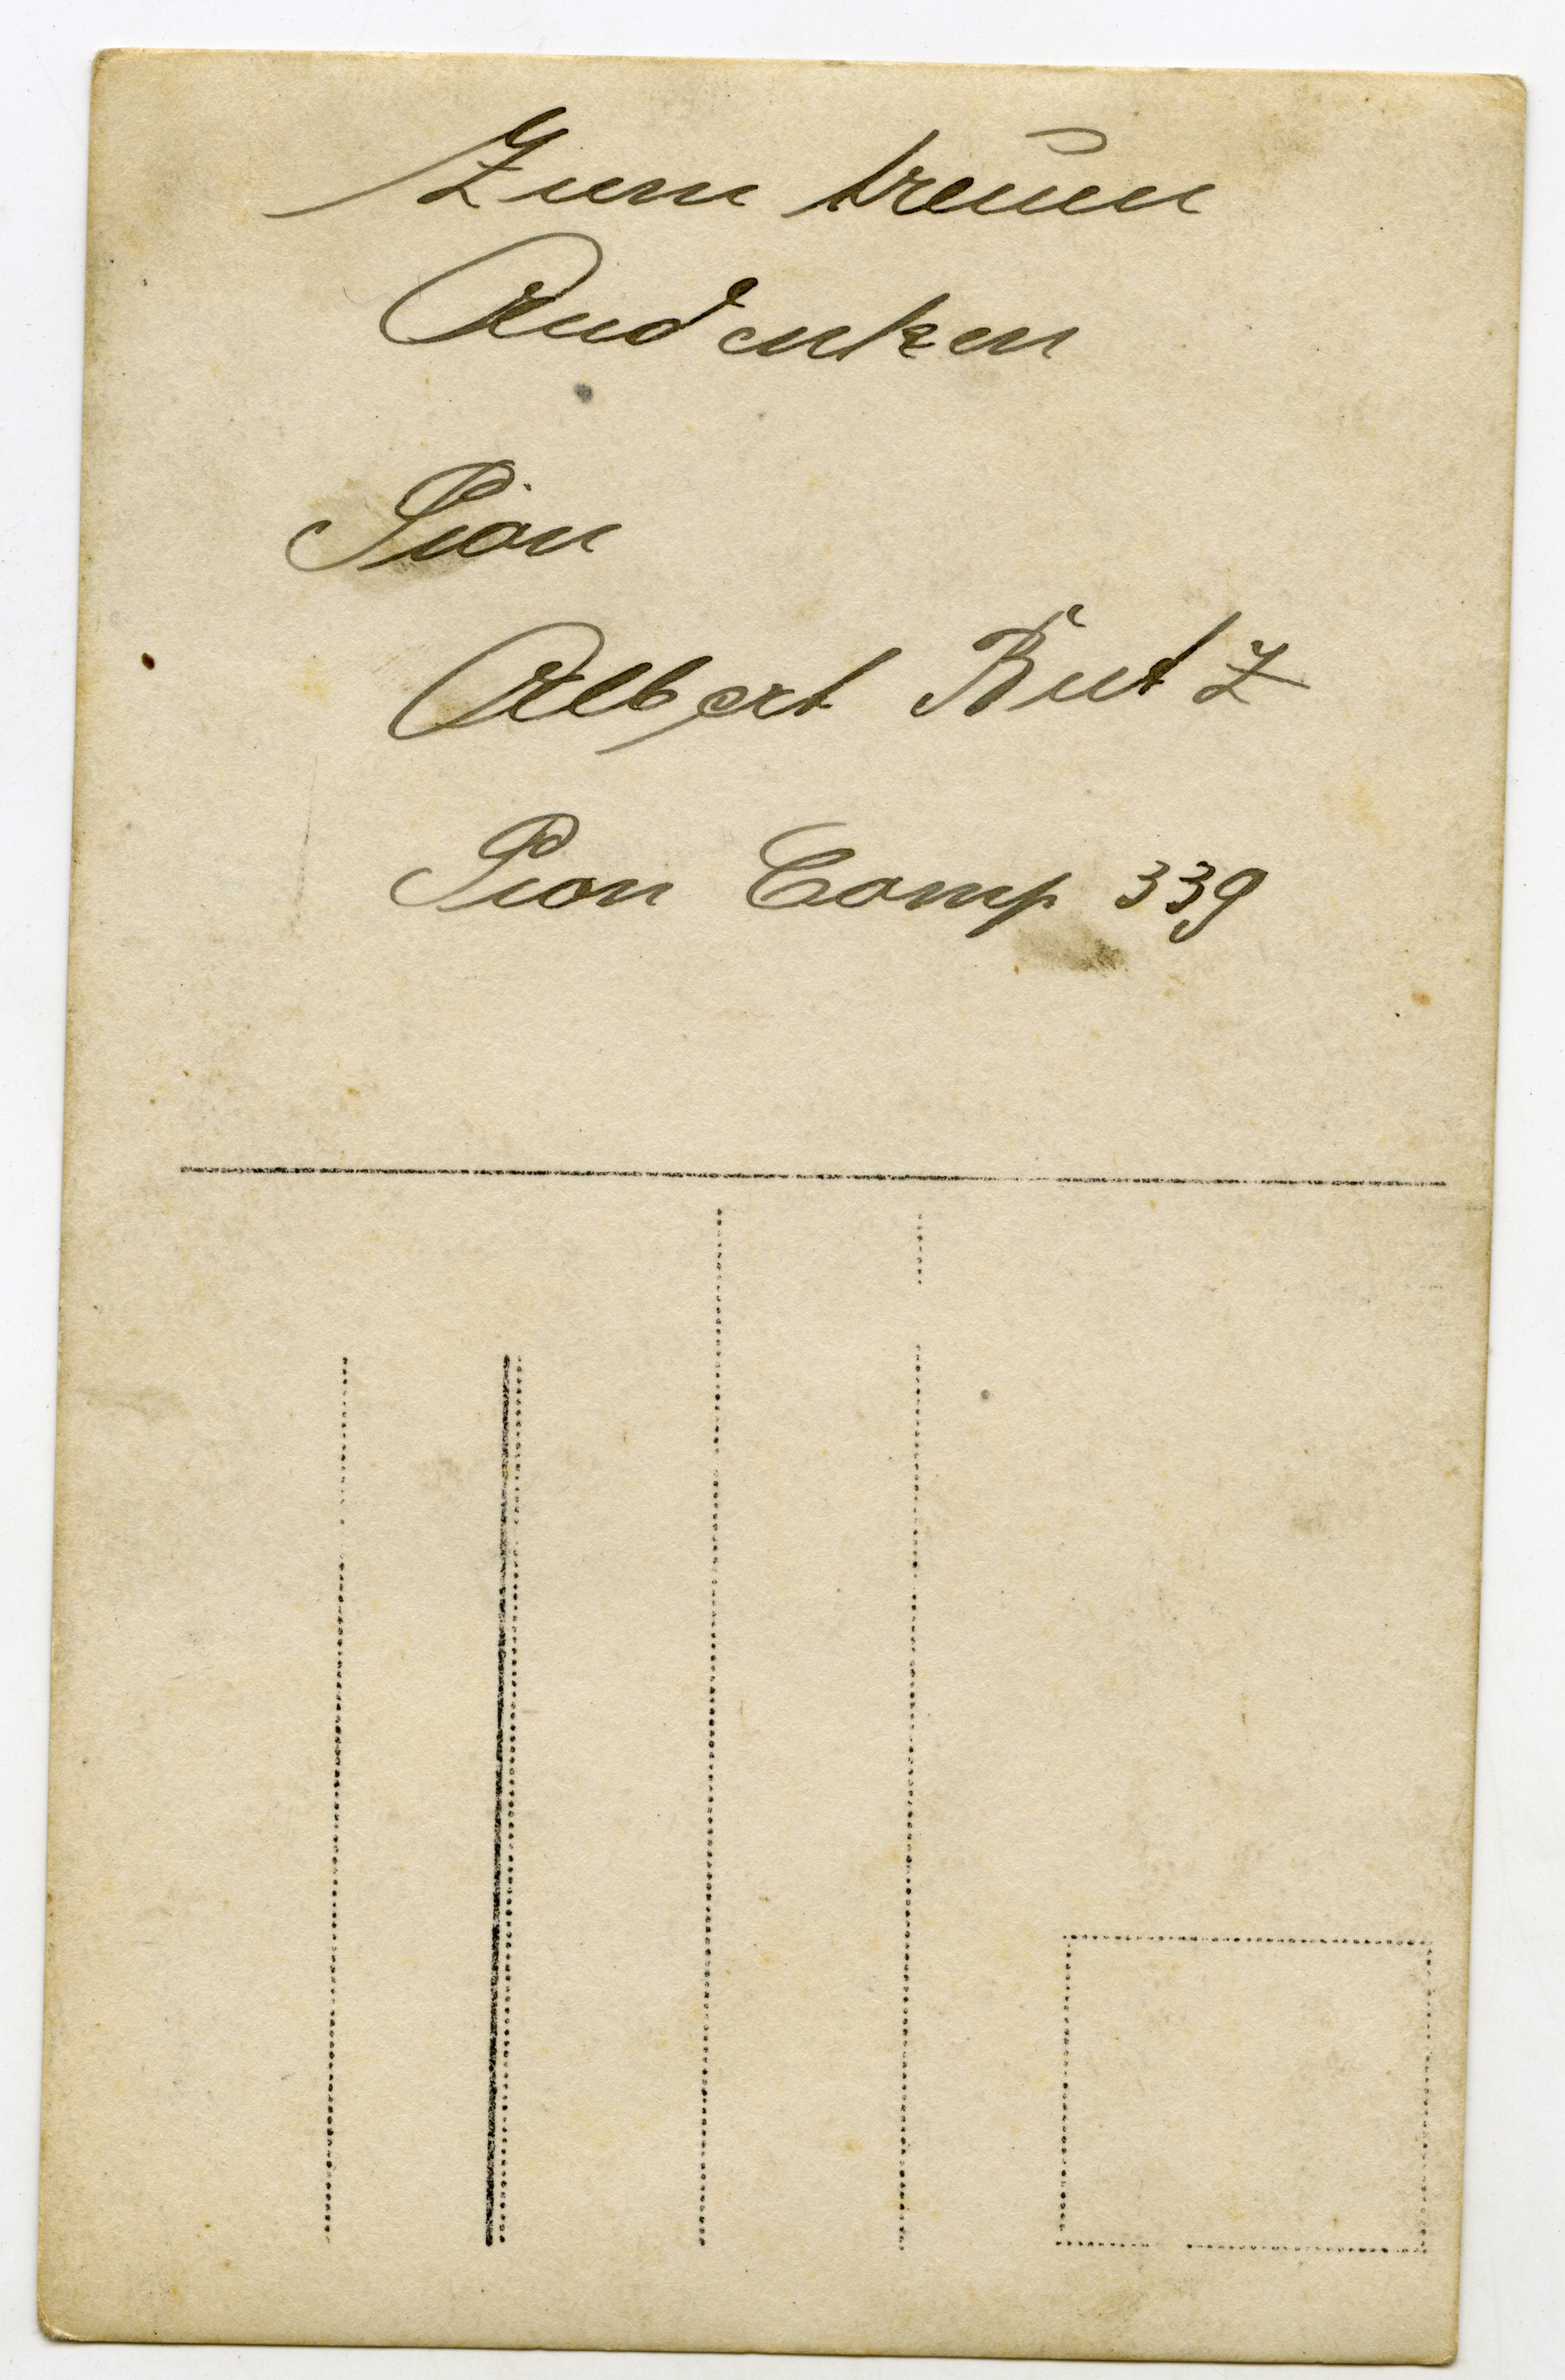 Zum treuen
Andenken
Pion
Albert Butz
Pion Comp 339